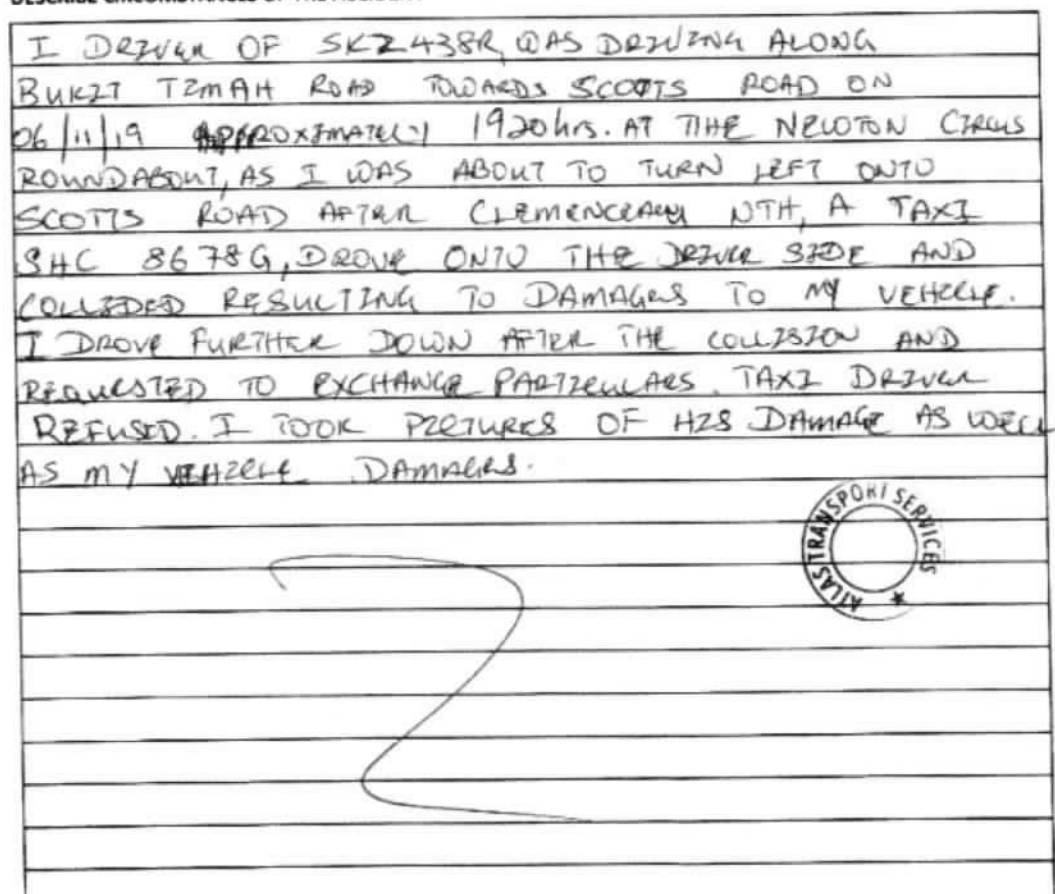 DESCRIBE CIRCUMSTANCES OF THE ACCIDENT
I DRIVER OF SKZ438R, WAS DRIVING ALONG
BUKIT TIMAH ROAD TOWARDS SCOTTS ROAD ON
06/11/19 APPROXIMATELY 1920hrs. AT THE NEWTON CIRCUS
ROUNDABOUT, AS I WAS ABOUT TO TURN LEFT ONTO
SCOTTS ROAD AFTER CLEMENCEAU NTH, A TAXI
SHC 8678G, DROVE ONTO THE DRIVER SIDE AND
COLLIDED RESULTING TO DAMAGES TO MY VEHICLE.
I DROVE FURTHER DOWN AFTER THE COLLISION AND
REQUESTED TO EXCHANGE PARTICULARS. TAXI DRIVER
REFUSED. I TOOK PICTURES OF HIS DAMAGE AS WELL
AS MY VEHICLE DAMAGES.
ATLAS TRANSPORT SERVICES